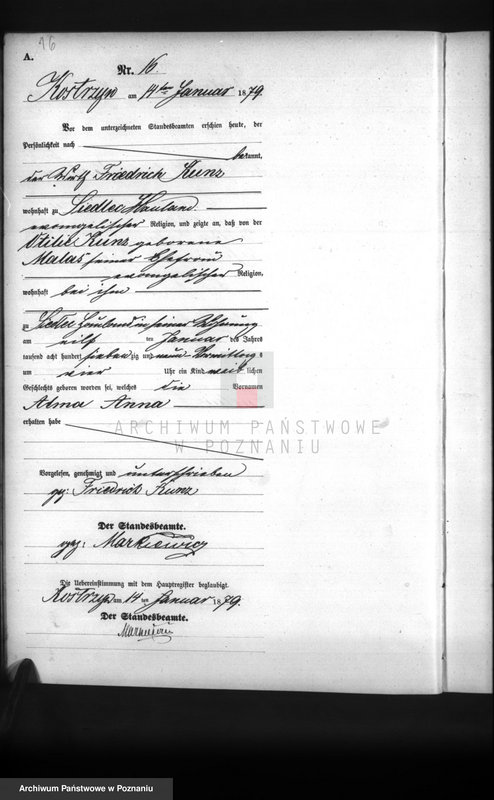 16
A.
Nr. 16.
Kostrzyn am 14ten Januar 1879
Vor dem unterzeichneten Standesbeamten erschien heute, der
Persönlichkeit nach
bekannt,
der Wirth Friedrich Kunz
wohnhaft zu Siedlec Hauland
evangelischer Religion, und zeigte an, daß von der
Otilie Kunz geborene
Malas seiner Ehefrau
evangelischer Religion,
wohnhaft bei ihm
zu Siedlec Hauland in seiner Wohnung
am eilf ten Januar des Jahres
tausend acht hundert sieben zig und neun Vormittags
um vier Uhr ein Kind weib lichen
Geschlechts geboren worden sei, welches die Vornamen
Alma Anna
erhalten habe
ARCHIWUM PAŃSTWOWE
W POZNANIU
Vorgelesen, genehmigt und unterschrieben
gez: Friedrich Kunz
Der Standesbeamte.
gez: Markiewicz
Die Uebereinstimmung mit dem Hauptregister beglaubigt.
Kostrzyn am 14 ten Januar 1879.
Der Standesbeamte.
Markiewicz
Archiwum Państwowe w Poznaniu